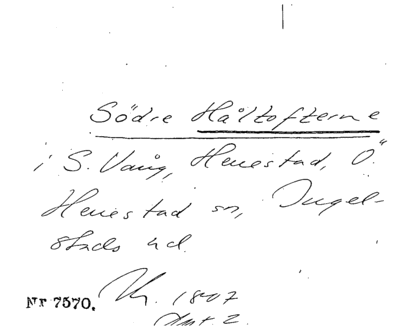 Södre Håltofterne
i S. Vång, Henestad, Ö.
Henestad sn, Ingel-
stads hd.
Nr 7570. 1807
Akt 2.